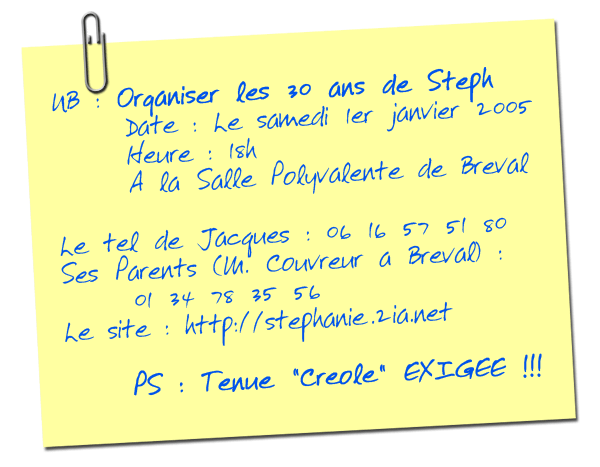 NB : Organiser les 30 ans de Steph
Date : Le samedi 1er janvier 2005
Heure : 18h
A la Salle Polyvalente de Breval
Le tel de Jacques : 06 16 57 51 80
Ses Parents (M. Couvreur a Breval) :
01 34 78 35 56
Le site : http://stephanie.2ia.net
PS : Tenue "Creole" EXIGEE !!!